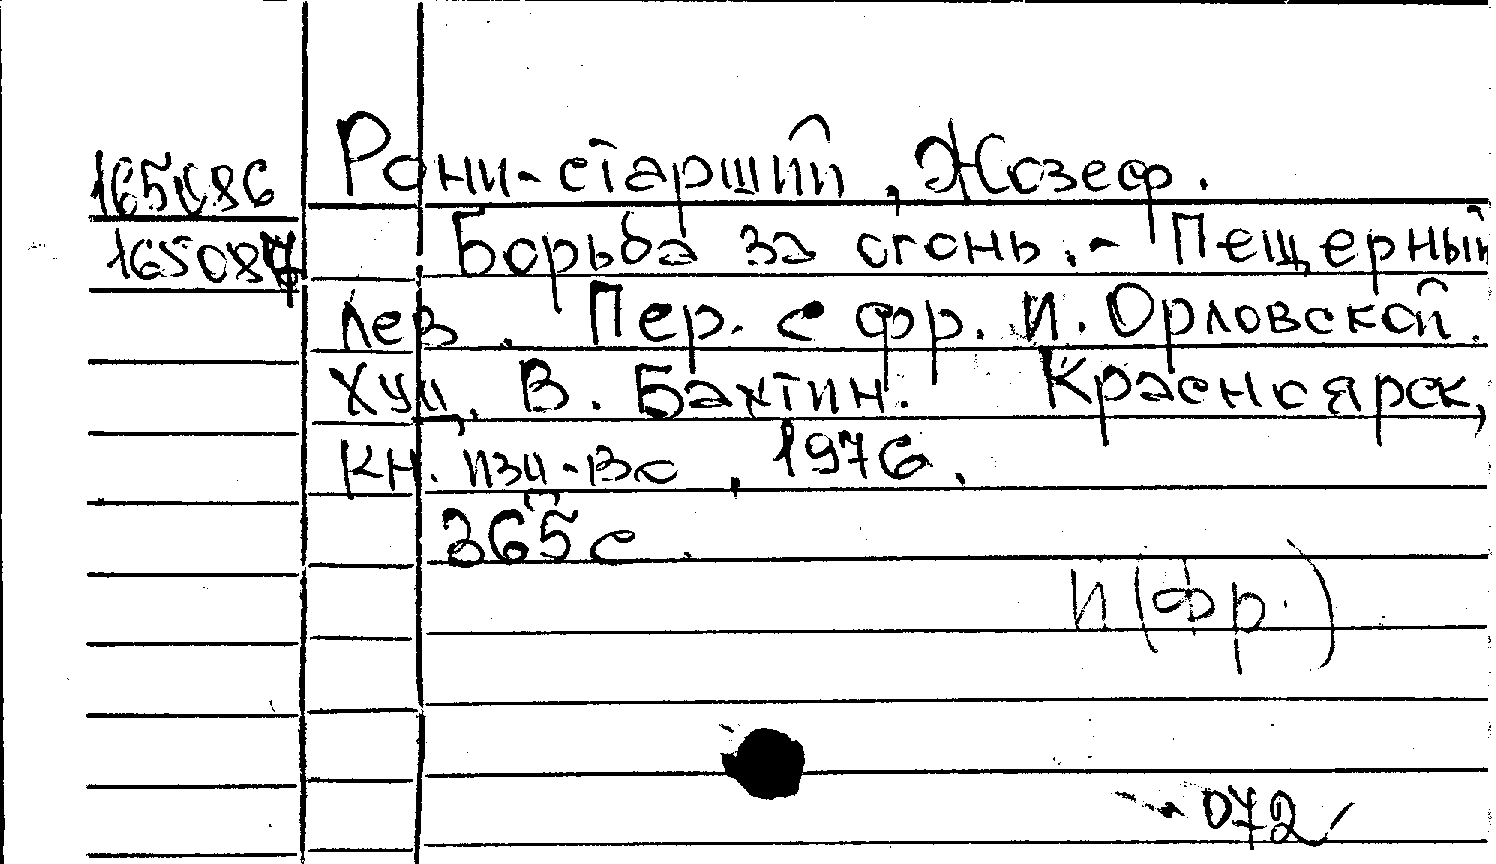 165086 Рони-старший, Жозеф.
165087 Борьба за огонь. - Пещерный
лев. Пер. с фр. И. Орловской.
Худ. В. Бахтин. Красноярск,
кн. изд-во, 1976.
365 с.
И(фр.)
072